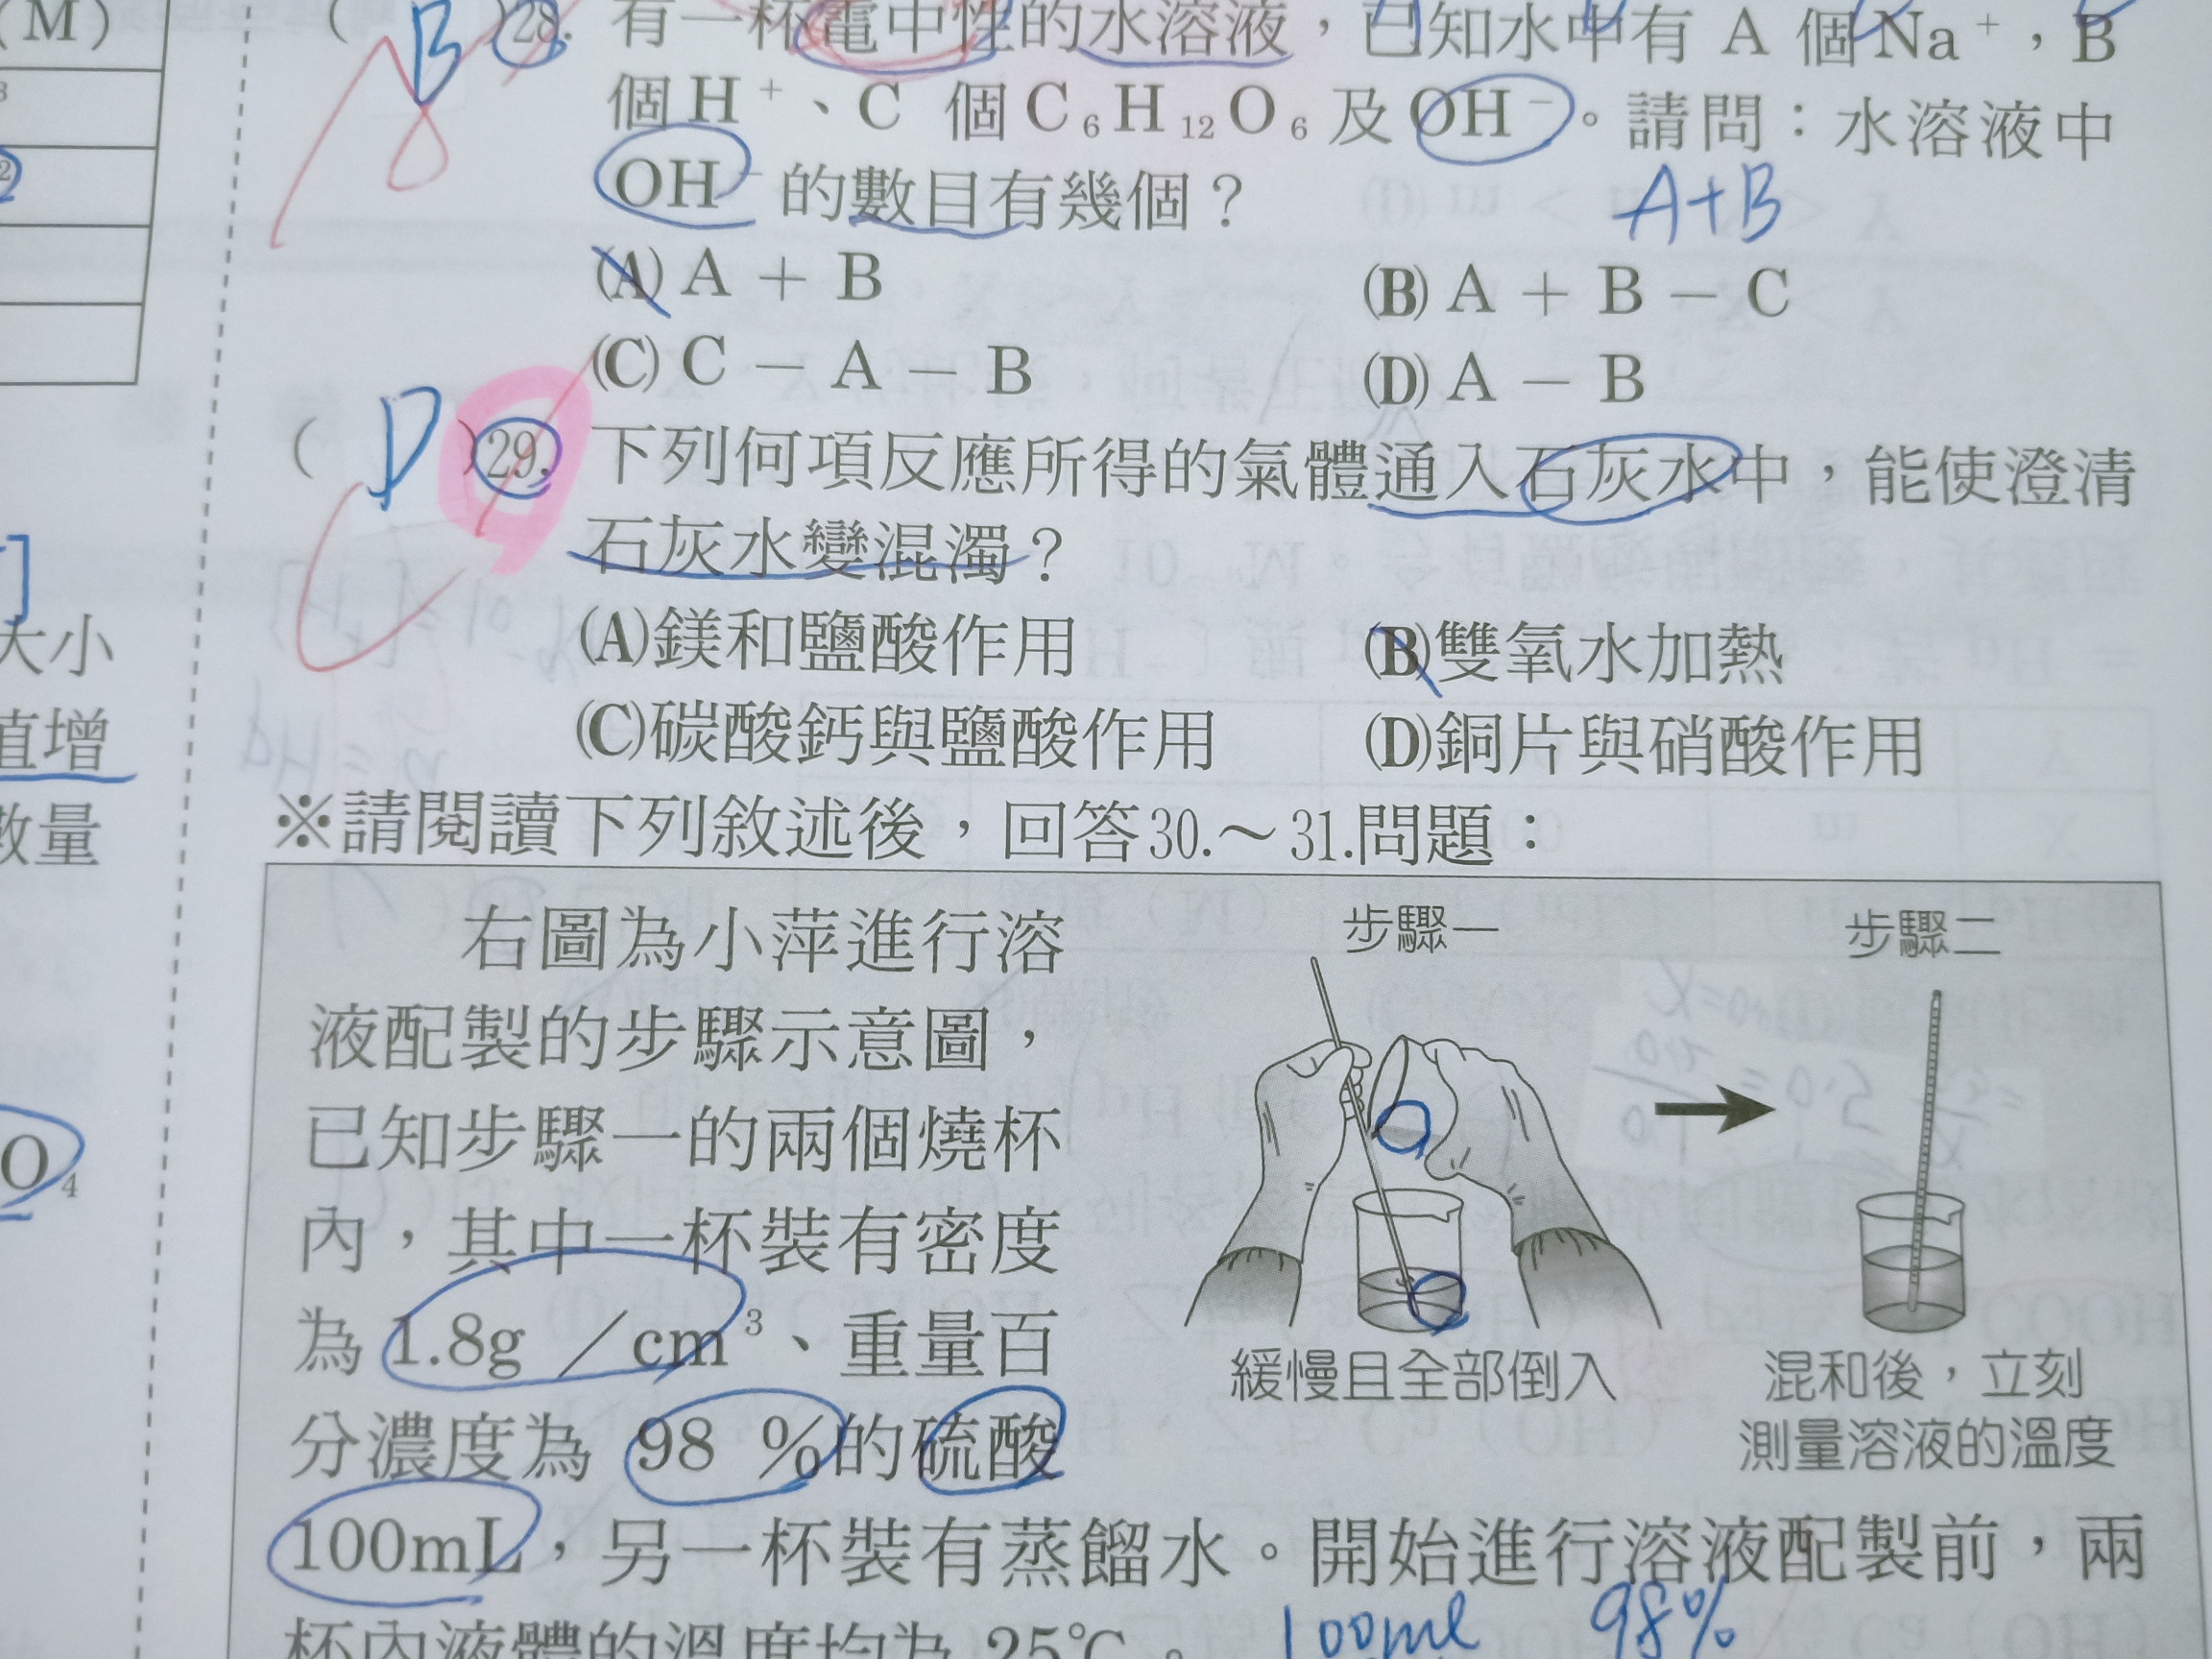 (M)
3
2
大小
值增
數量
O4
( B )28. 有一杯電中性的水溶液，已知水中有 A 個Na⁺，B
個H⁺、C 個C₆H₁₂O₆及OH⁻。請問：水溶液中
OH⁻的數目有幾個？
A+B
(A) A + B (B) A + B − C
(C) C − A − B (D) A − B
( D )29. 下列何項反應所得的氣體通入石灰水中，能使澄清
石灰水變混濁？
(A)鎂和鹽酸作用 (B)雙氧水加熱
(C)碳酸鈣與鹽酸作用 (D)銅片與硝酸作用
※請閱讀下列敘述後，回答30.～31.問題：
右圖為小萍進行溶
液配製的步驟示意圖，
已知步驟一的兩個燒杯
內，其中一杯裝有密度
為 1.8g ／cm³、重量百
分濃度為 98 %的硫酸
100mL，另一杯裝有蒸餾水。開始進行溶液配製前，兩
杯內液體的溫度均為 25℃。
步驟一
緩慢且全部倒入
步驟二
混和後，立刻
測量溶液的溫度
100ml 98%